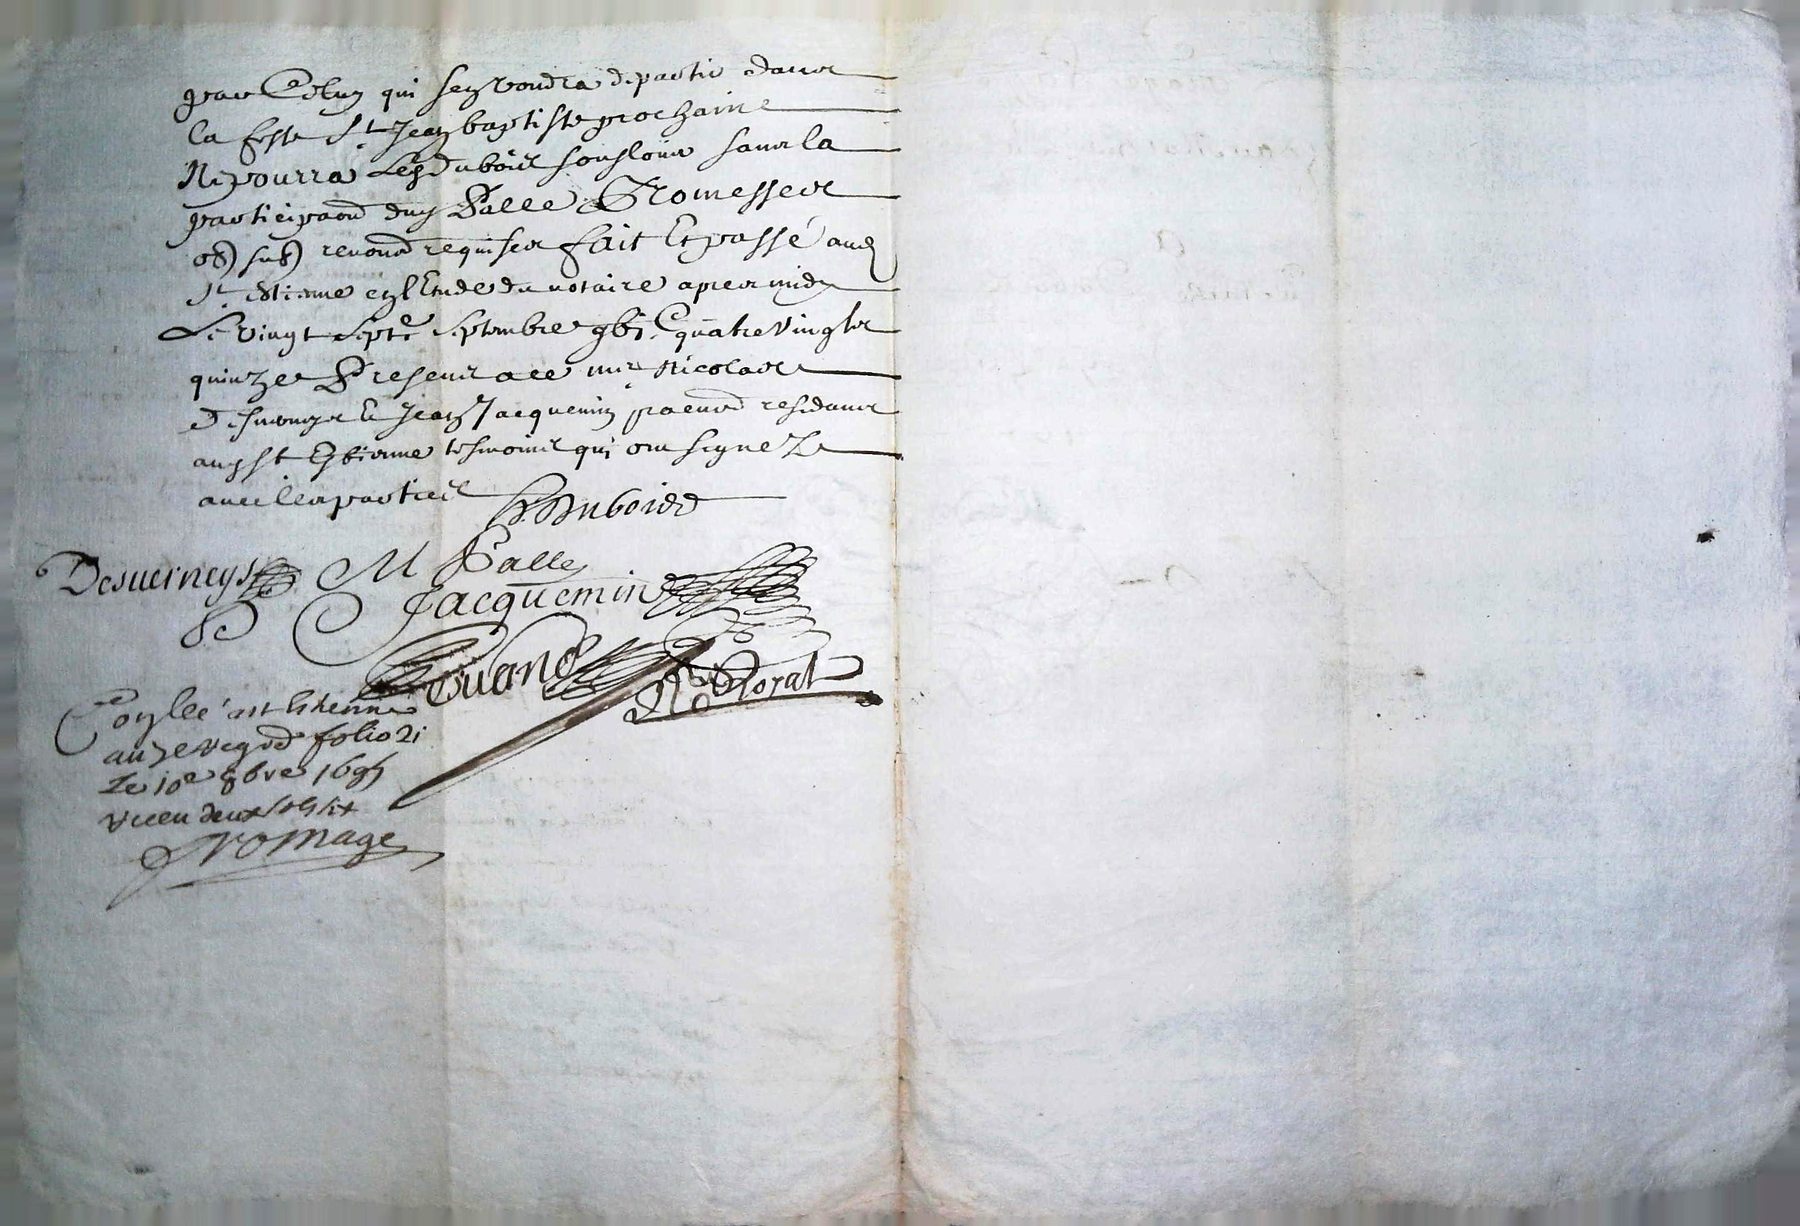 par Celuy qui sen voudra departir dans
la feste St Jean baptiste prochaine
Ne pourra Led duboix soubslouer sans la
participaon dud Palle Promesses
obl submis renonõ requises fait Et passé aud
St Estienne en l'Etude du notaire apres midy
Le vingt septe septembre gbi C quatre vingts
quinze Presents a ce mre Nicolas
et Jean Jacquemin pratt residants
aud St Estienne tesmoins qui ont signez
avec les parties
Duboisd
Desuerneys
M Palle
Jacquemin
Rorat
Conlleé a st Estienne
au 3e regre folio 21
Le 10e 8bre 1695
receu deux sols
Fromage